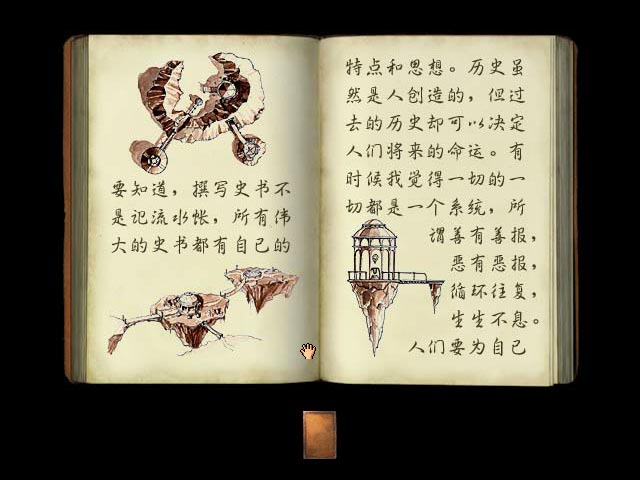 要知道，撰写史书不
是记流水帐，所有伟
大的史书都有自己的
特点和思想。历史虽
然是人创造的，但过
去的历史却可以决定
人们将来的命运。有
时候我觉得一切的一
切都是一个系统，所
谓善有善报，
恶有恶报，
循环往复，
生生不息。
人们要为自己